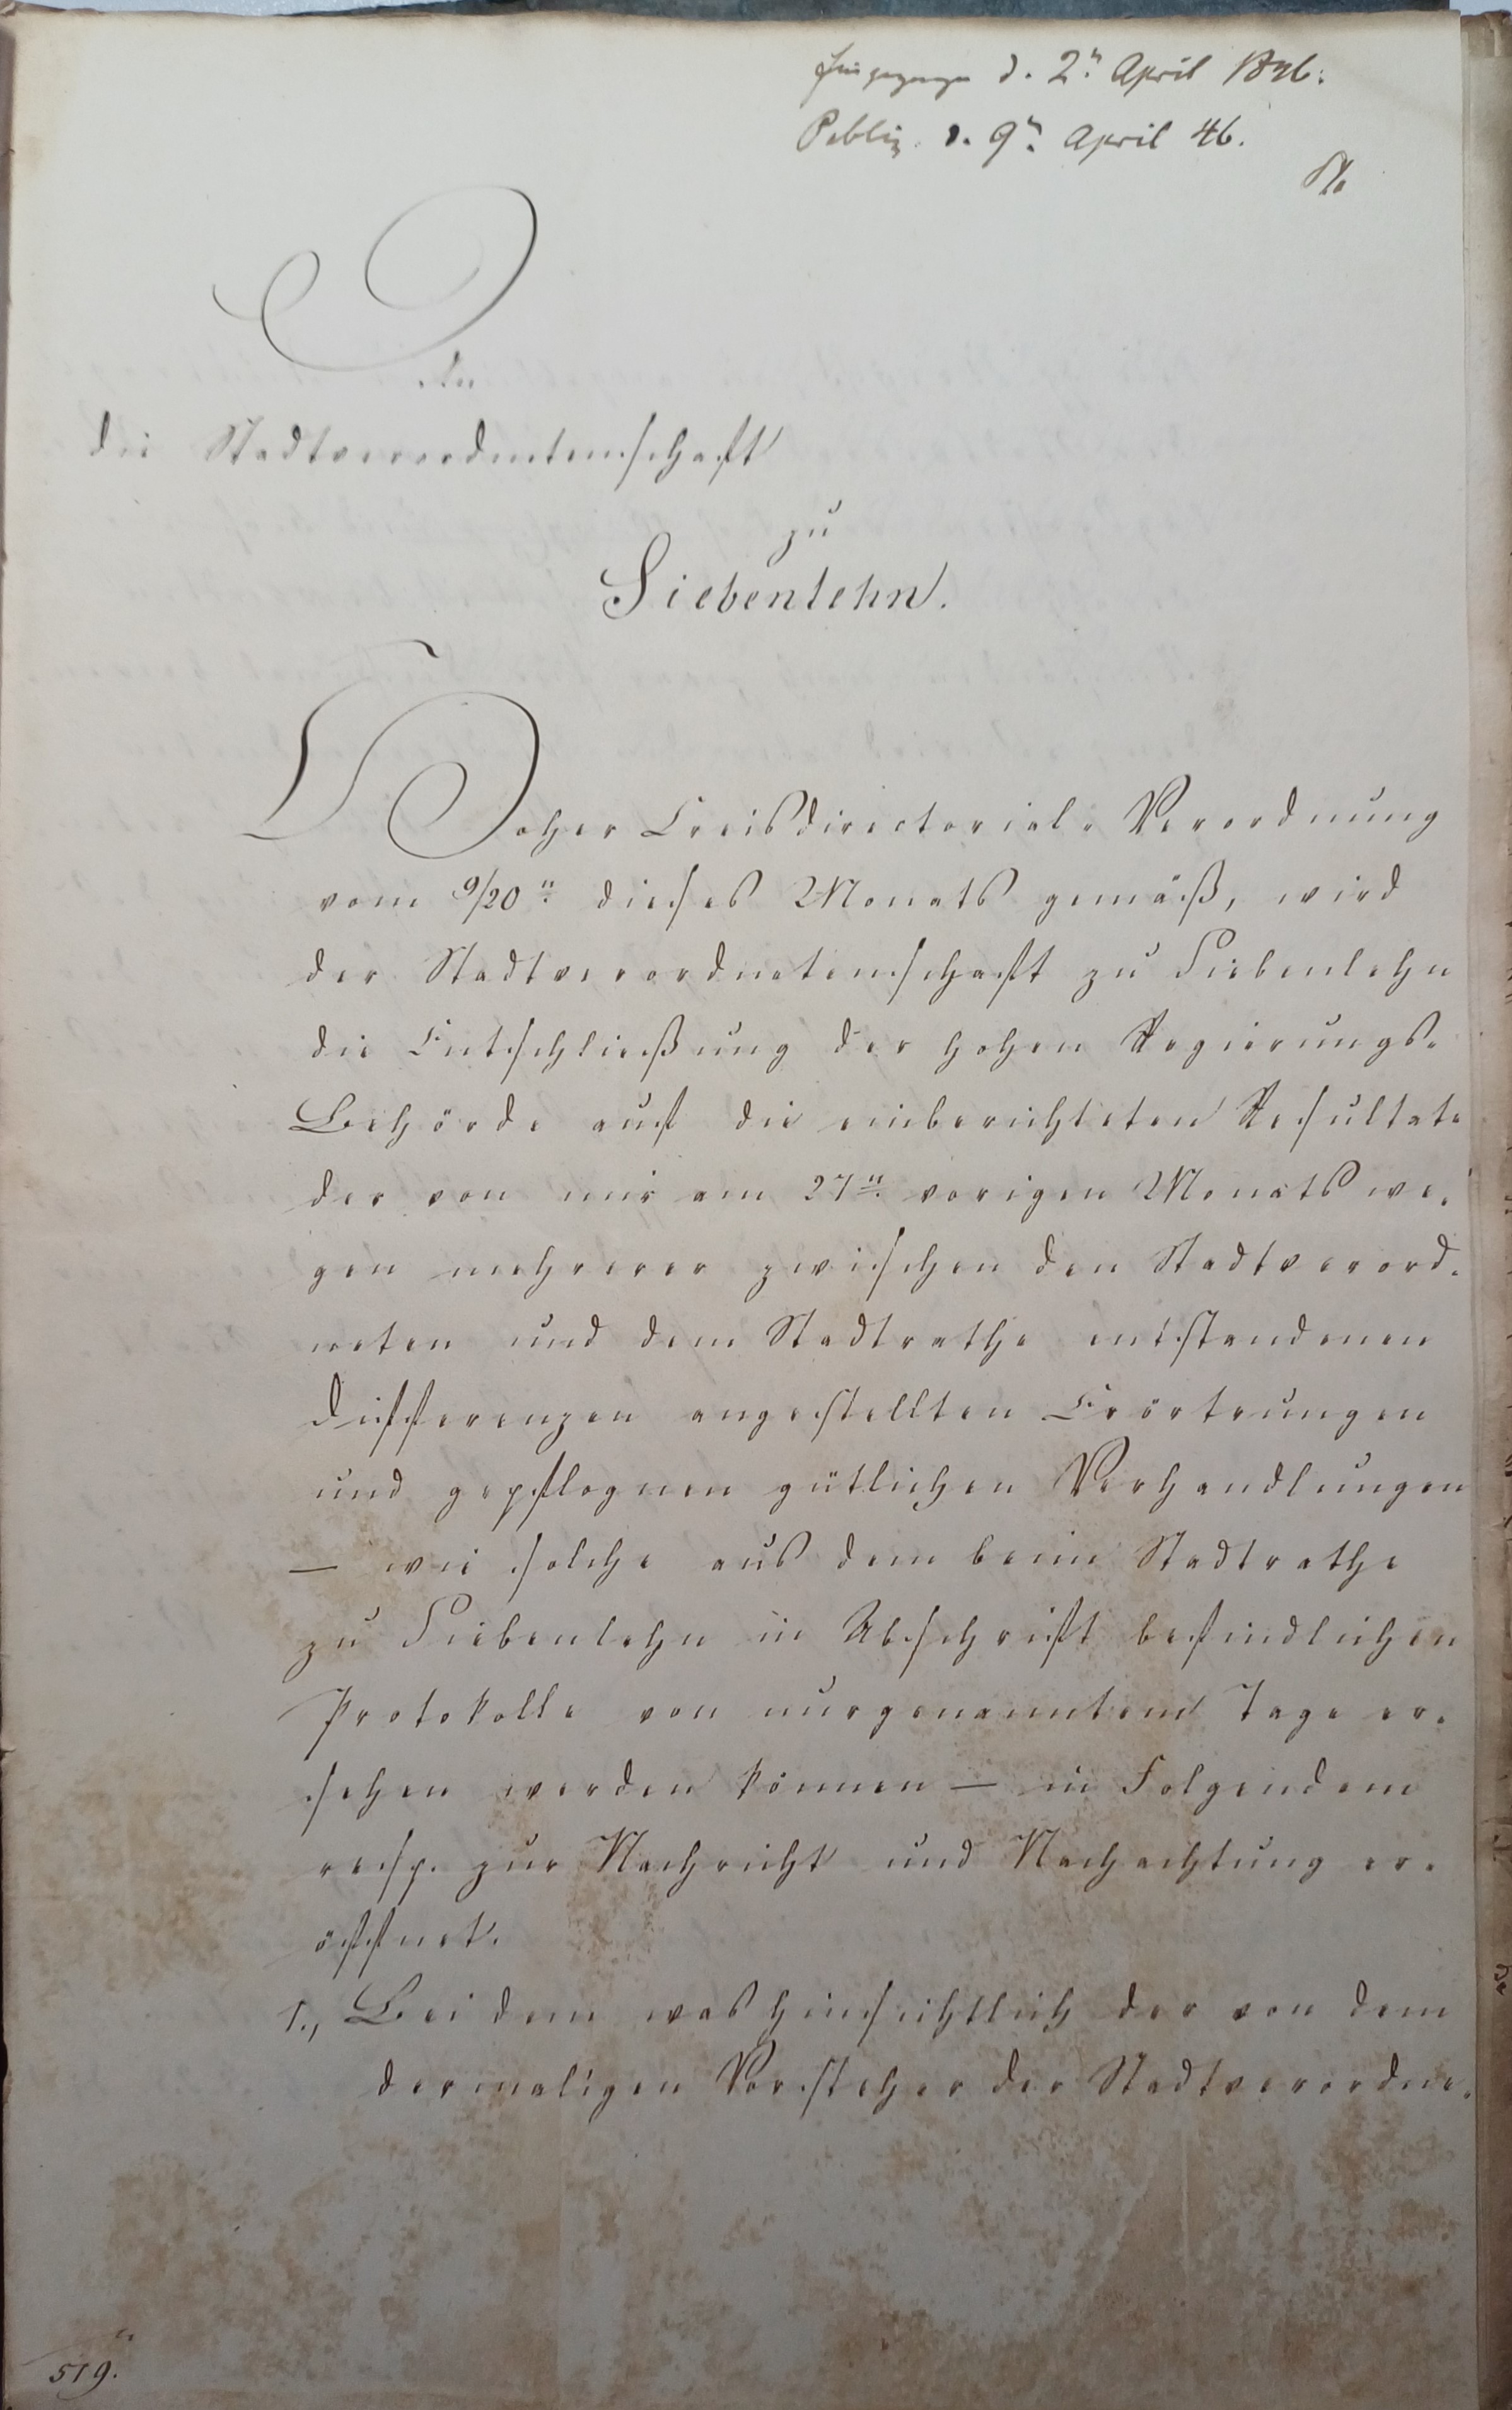 Eingegangen d. 2n April 1846.
Publiz. d. 9n April 46.
An
die Stadtverordnetenschaft
zu
Siebenlehn.
Hoher Creisdirectorial-Verordnung
vom 9/20n dieses Monats gemäß, wird
der Stadtverordnetenschaft zu Siebenlehn
die Entschließung der hohen Regierungs-
Behörde auf die einberichteten Resultate
der von mir am 27n vorigen Monats we-
gen mehrerer zwischen den Stadtverord-
neten und dem Stadtrathe entstandenen
Differenzen angestellten Erörterungen
und gepflognen gütlichen Verhandlungen
— wie solche aus dem beim Stadtrathe
zu Siebenlehn in Abschrift befindlichen
Protokolle von nurgenanntem Tage er-
sehen werden können — in Folgendem
resp. zur Nachricht und Nachachtung er-
öffnet.
1., Bei dem was hinsichtlich der von dem
dermaligen Vorsteher der Stadtverordne-
519.